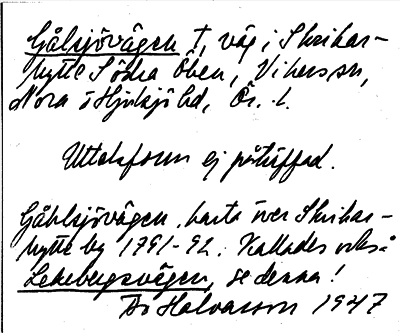 Gålsjövägen †, väg i Skrikar-
hytte Södra Öhen, Vikers sn,
Nora o Hjulsjö hd, Ör. l.
Uttalsform ej påträffad.
Gåhlsjövägen, karta över Skrikar-
hytte by 1791-92. Kallades också
Lekebergsvägen, se denna!
Bo Halvarsson 1947